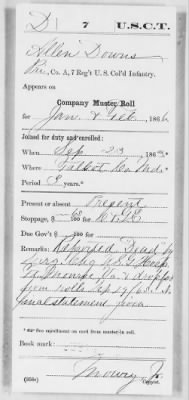 D | 7 | U.S.C.T.
Allen Downs
Pvt, Co. A, 7 Reg't U. S. Col'd Infantry.
Appears on
Company Muster Roll
for Jan & Feb, 1866
Joined for duty and enrolled:
When Sep 23, 186
Where Talbot Co Md.
Period 3 years.*
Present or absent Present
Stoppage, $ 100 for
Due Gov't $ 100 for
Remarks: Reported Dead by
Surg. Chg U.S. Hosp
Ft Monroe Va & dropped
from rolls Sep 29/65
final statement given
* See enrollment on card from muster-in roll.
Book mark:
(358c) Copyist.